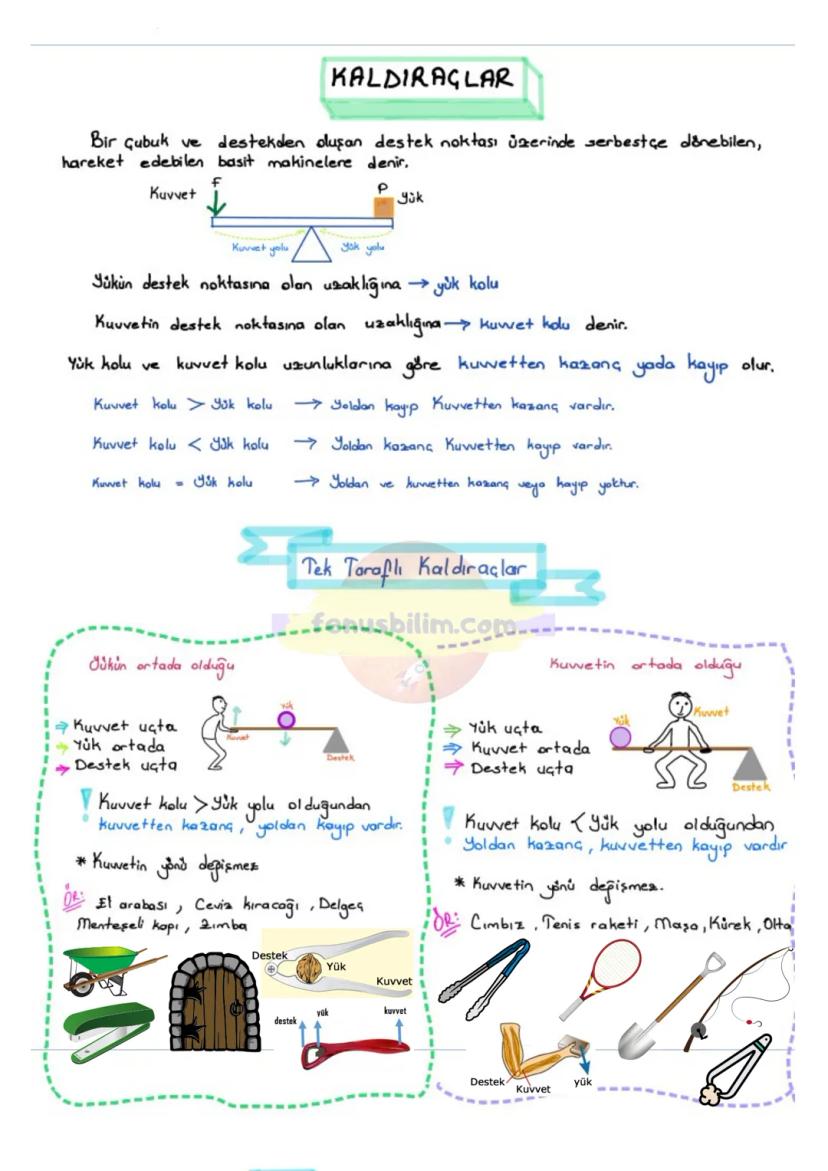 KALDIRAÇLAR
Bir çubuk ve destekden oluşan destek noktası üzerinde serbestçe dönebilen,
hareket edebilen basit makinelere denir.
F
P
Kuvvet
Yük
Kuvvet yolu
Yük yolu
Yükün destek noktasına olan uzaklığına → yük kolu
Kuvvetin destek noktasına olan uzaklığına → kuvvet kolu denir.
Yük kolu ve kuvvet kolu uzunluklarına göre kuvvetten kazanç yada kayıp olur.
Kuvvet kolu > Yük kolu → Yoldan kayıp Kuvvetten kazanç vardır.
Kuvvet kolu < Yük kolu → Yoldan kazanç Kuvvetten kayıp vardır.
Kuvvet kolu = Yük kolu → Yoldan ve kuvvetten kazanç veya kayıp yoktur.
Tek Taraflı Kaldıraçlar
fenusbilim.com
Yükün ortada olduğu
⇒ Kuvvet uçta
⇒ Yük ortada
⇒ Destek uçta
Yük
Kuvvet
Destek
! Kuvvet kolu > Yük yolu olduğundan
kuvvetten kazanç, yoldan kayıp vardır.
* Kuvvetin yönü değişmez
ÖR: El arabası, Ceviz kıracağı, Delgeç
Menteşeli kapı, zımba
Destek
Yük
Kuvvet
destek
yük
kuvvet
Kuvvetin ortada olduğu
⇒ Yük uçta
⇒ Kuvvet ortada
⇒ Destek uçta
Yük
Kuvvet
Destek
! Kuvvet kolu < Yük yolu olduğundan
Yoldan kazanç, kuvvetten kayıp vardır
* Kuvvetin yönü değişmez.
ÖR: Cımbız, Tenis raketi, Maşa, Kürek, Olta
Destek
Kuvvet
yük